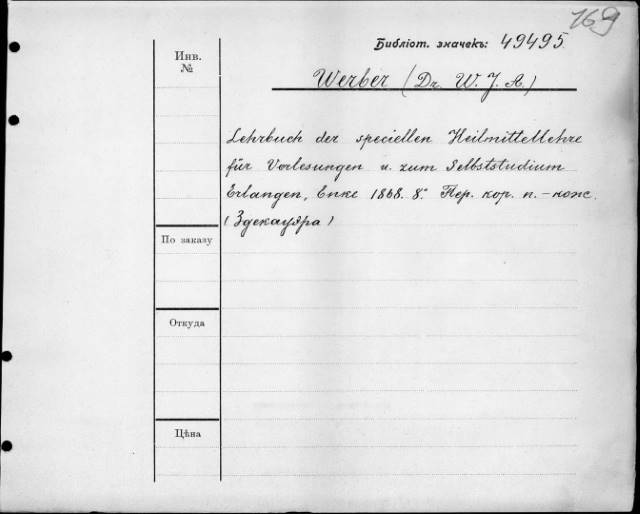 169
Библіот. значекъ: 49495.
Инв.
№
Werber (Dr. W. J. A.)
Lehrbuch der speciellen Heilmittellehre
für Vorlesungen u. zum Selbststudium
Erlangen, Enke 1868. 8.° Пер. кор. п. – кож.
(Здекауэра)
По заказу
Откуда
Цѣна